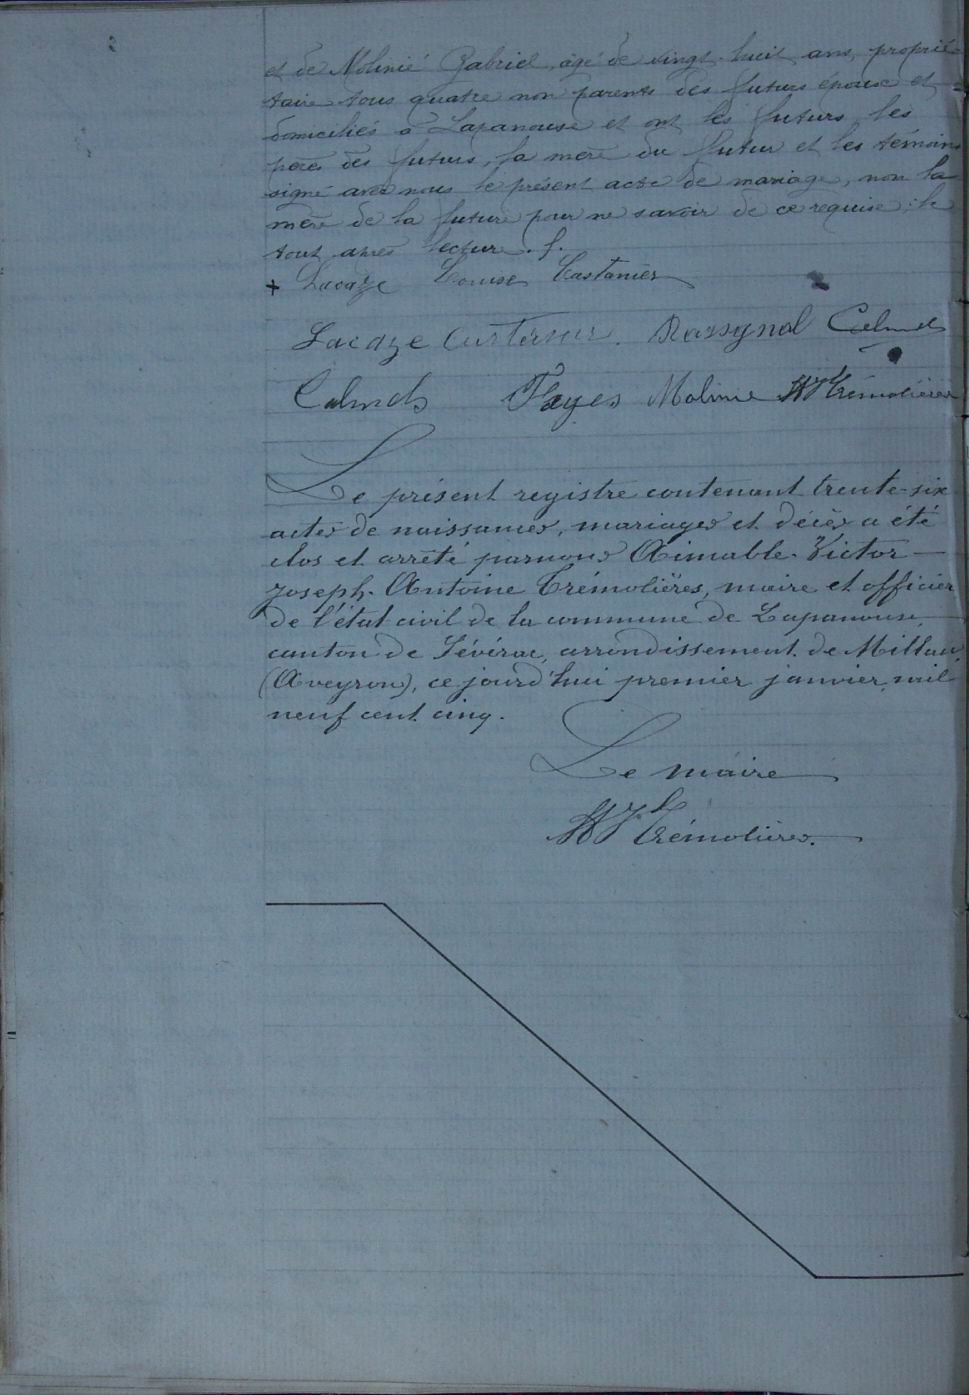 et de Molinié Gabriel, âgé de vingt-huit ans, proprié-
taire tous quatre non parents des futurs époux et
domiciliés à Lapanouse et ont les futurs, les
pères des futurs, la mère du futur et les témoins
signé avec nous le présent acte de mariage, non la
mère de la future pour ne savoir de ce requise; le
tout après lecture. f.
+ Lacaze Louise Castanier
Lacaze Castanier. Rassygnol Calmels
Calmels Fages Molinie AV Trémolières
Le présent registre contenant trente-six
actes de naissances, mariages et décès a été
clos et arrêté par nous Aimable-Victor
Joseph-Antoine Trémolières, maire et officier
de l'état civil de la commune de Lapanouse
canton de Sévérac, arrondissement de Millau,
(Aveyron), ce jourd'hui premier janvier, mil
neuf cent cinq.
Le maire
AV Trémolières.